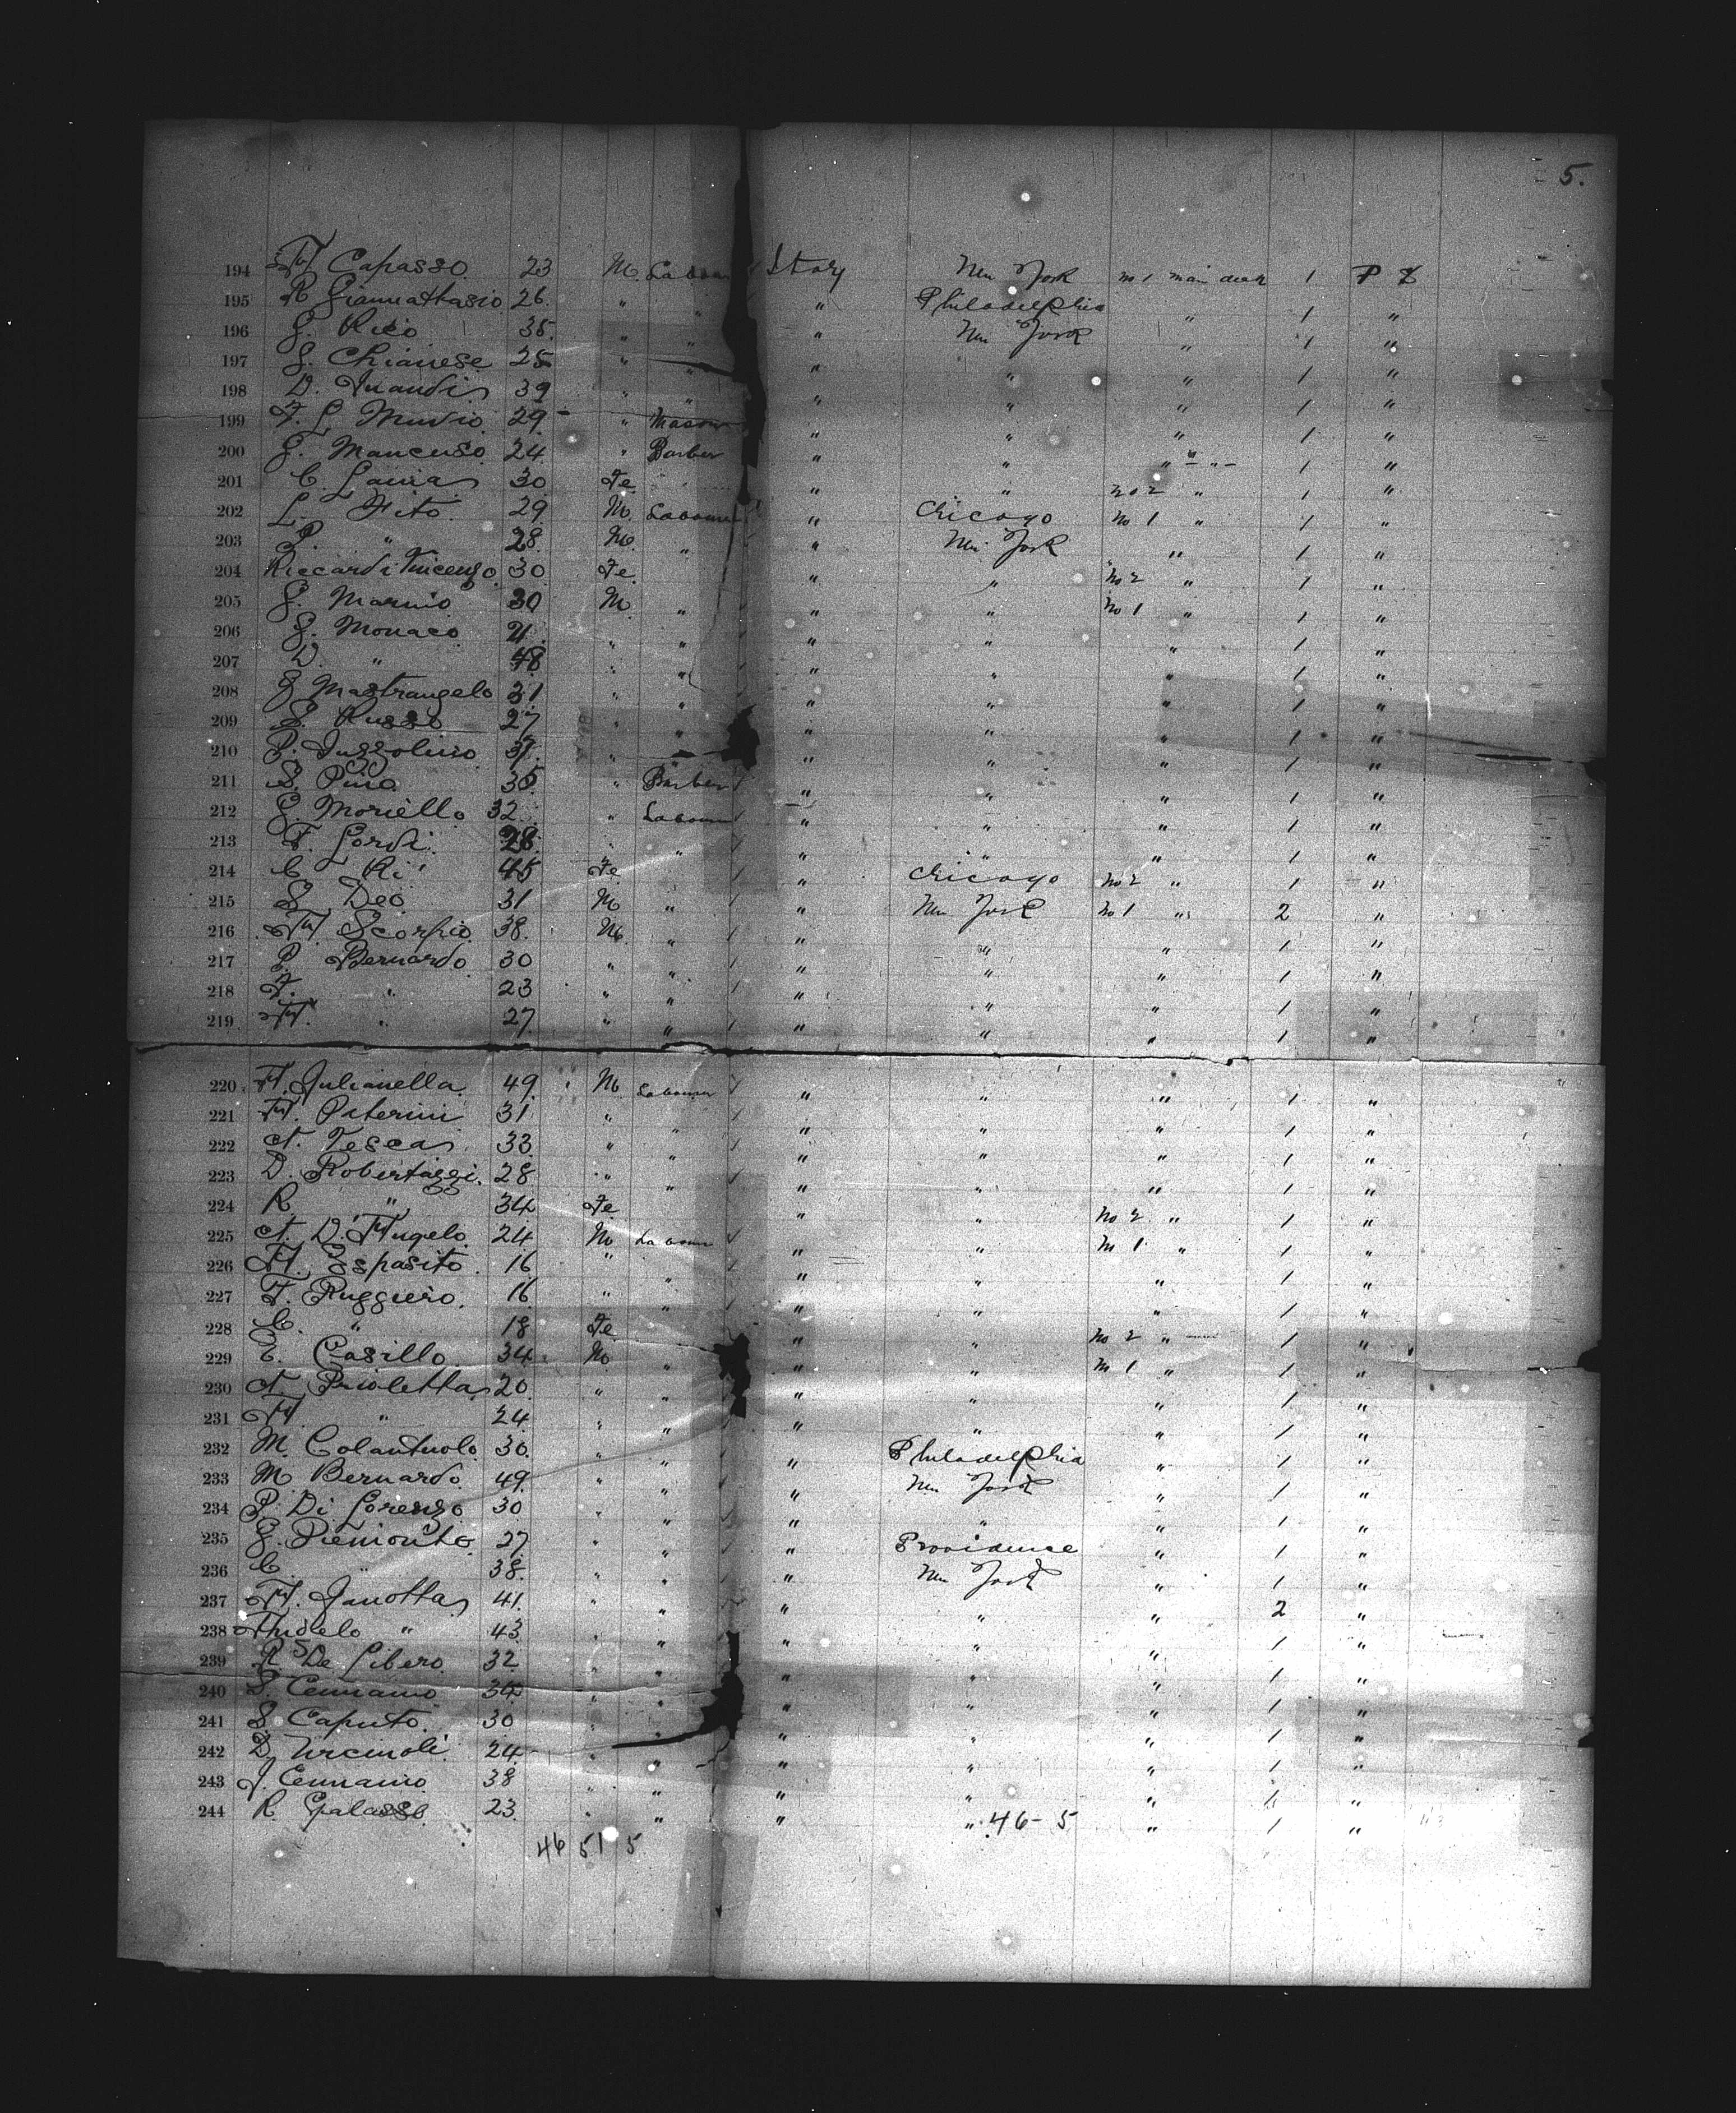 5.
194 A Capasso 23 M. Labour Italy New York no 1 main deck 1 P Z
195 R Giannattasio 26. " " " Philadelphia " 1 "
196 G. Ricò 35. " " " New York " 1 "
197 G. Chianese 25 " " " " " 1 "
198 D. 39 " " " " " 1 "
199 F. L 29 " Mason " " " 1 "
200 G. Mancuso 24 " Barber " " " " 1 "
201 C. Lauria 30 Fe " " no 2 " 1 "
202 L. Fito 29 M. Labour " Chicago No 1 " 1 "
203 P " 28 M. " " New York " 1 "
204 Riccardi Vincenzo 30 Fe. " " No 2 " 1 "
205 G. Marino 30 M. " " " No 1 " 1 "
206 G. Monaco 21 " " " " " 1 "
207 D. " 48 " " " " " 1 "
208 G Mastrangelo 31 " " " " " 1 "
209 S. Russo 27 " " " " " 1 "
210 P. Iuzzolino 37. " " " " " 1 "
211 S. Pino 35 " Barber " " " 1 "
212 G. Moriello. 32 " Labour " " " 1 "
213 F. Lordi 28 " " " " " 1 "
214 C Ri 45 Fe " Chicago No 2 " 1 "
215 S Deo 31 M " " New York No 1 " 2 "
216 A Scorpio 38. M. " " " " 1 "
217 P. Bernardo 30 " " " " " 1 "
218 F. " 23 " " " " " 1 "
219 A. " 27 " " " " " 1 "
220 A. Julianella 49. M. Labour " " " 1 "
221 A. Paterini 31 " " " " " 1 "
222 A. Tesca 33 " " " " " 1 "
223 D. Robertazzi. 28 " " " " " 1 "
224 R " 34 Fe " " No 2 " 1 "
225 A. D'Angelo 24 M Labour " " No 1 " 1 "
226 A. Espasito 16 " " " " " 1 "
227 F. Ruggiero. 16 " " " " " 1 "
228 C. " 18 Fe " " No 2 " 1 "
229 E. Casillo 34 M " " " No 1 " 1 "
230 A. Prioletta 20 " " " " " 1 "
231 A " 24 " " " " " 1 "
232 M. Colantuolo 30. " " " Philadelphia " 1 "
233 M Bernardo 49. " " " New York " 1 "
234 P. Di Lorenzo 30 " " " " " 1 "
235 G. Piemonte 27 " " " Providence " 1 "
236 C " 38. " " " New York " 1 "
237 A. Janotta 41. " " " " " 2 "
238 " 43 " " " " " 1 "
239 R De Libero 32 " " " " " 1 "
240 S. Cennamo 34 " " " " " 1 "
241 S Caputo. 30 " " " " " 1 "
242 D. Urcinoli 24 " " " " " 1 "
243 J. Cennamo 38 " " " " " 1 "
244 R Galasso 23. " " " " " 1 "
46 51 5 46 - 5